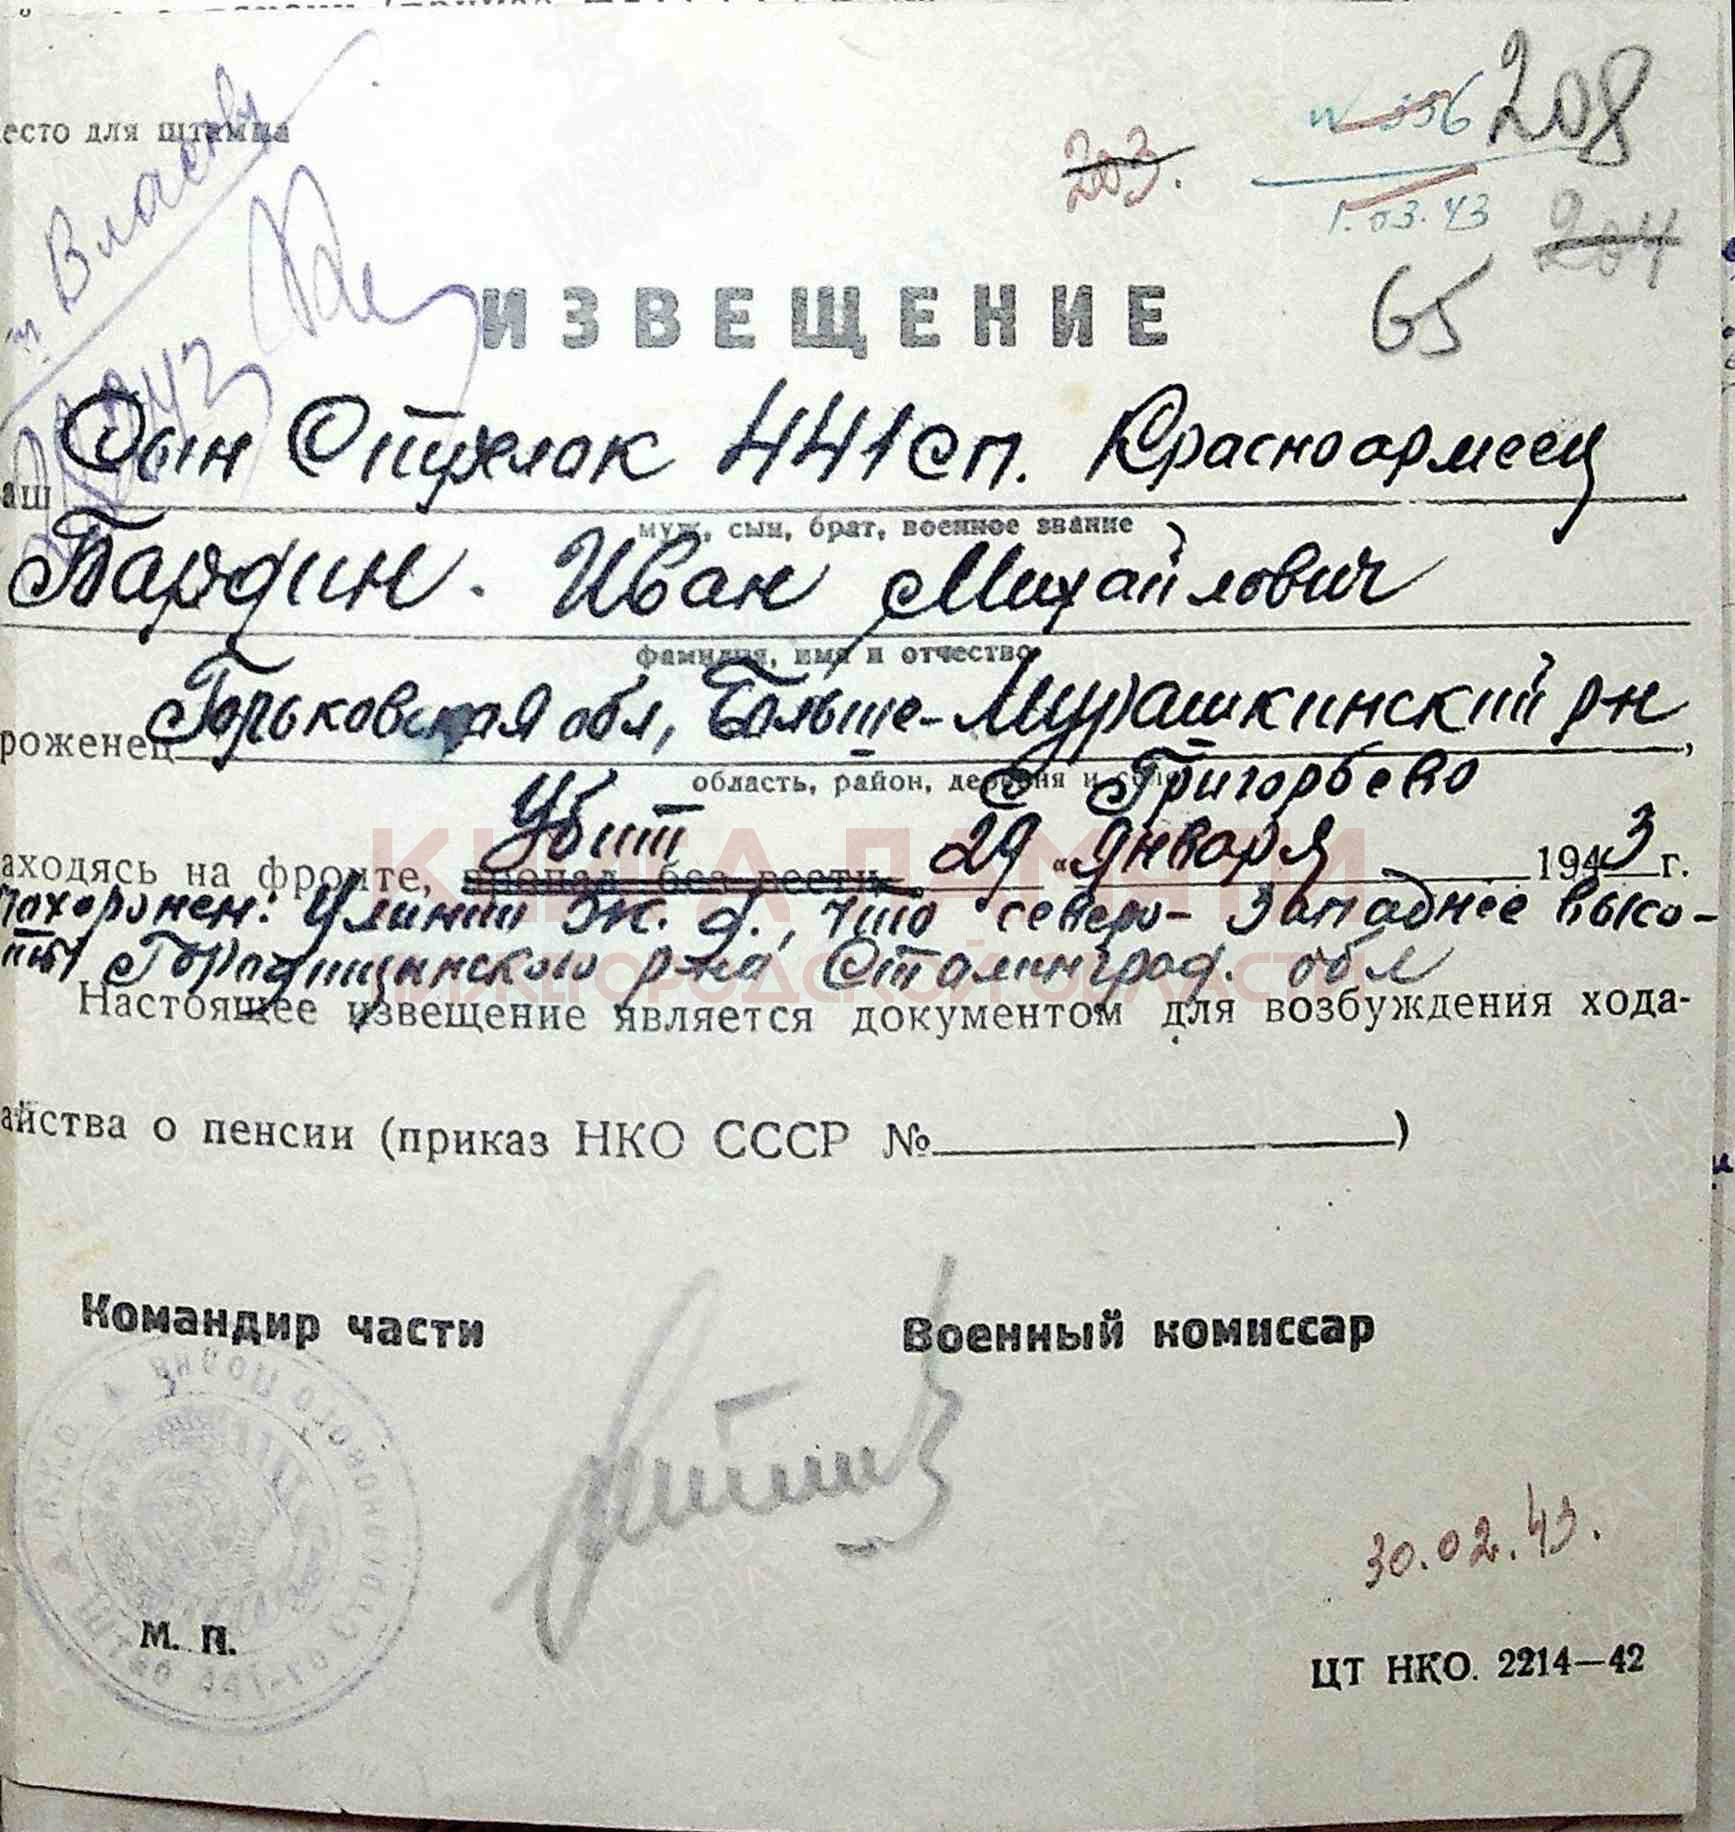 есто для штампа
Власовв
203.
N 556
208
1.03.43
204
65
ИЗВЕЩЕНИЕ
аш Сын Стрелок 441 сп. Красноармеец
муж, сын, брат, военное звание
Бардин. Иван Михайлович
фамилия, имя и отчество
роженец Горьковская обл, Больше-Мурашкинский р-н,
область, район, деревня и село
с Григорьево
Убит
аходясь на фронте, пропал без вести 29 "января 1943 г.
похоронен: У линии ж. д., что северо-западнее высо-
ты Городищенского р-на Сталинград. обл
Настоящее извещение является документом для возбуждения хода-
айства о пенсии (приказ НКО СССР №)
Командир части
Военный комиссар
30.02.43.
М. П.
ЦТ НКО. 2214—42
КНИГА ПАМЯТИ
НИЖЕГОРОДСКОЙ ОБЛАСТИ